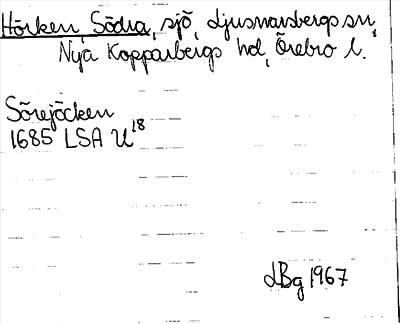 Hörken, Södra, sjö, Ljusnarsbergs sn,
Nya Kopparbergs hd, Örebro l.
Sörejöcken
1685 LSA U18
LBg 1967